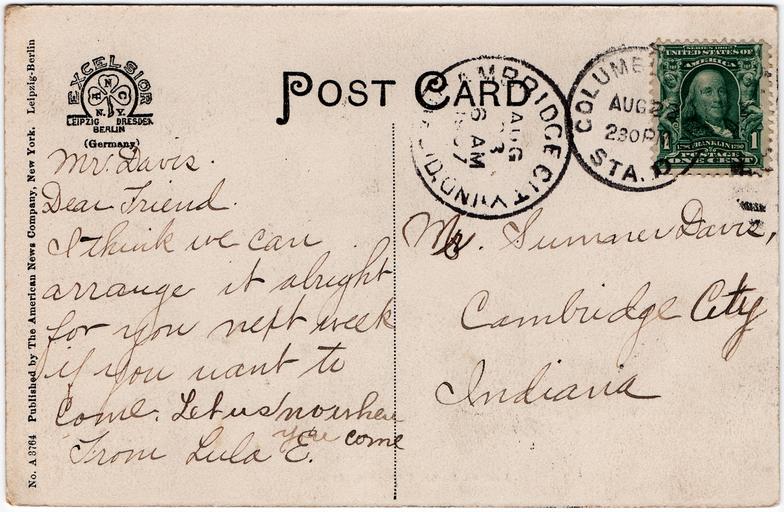 No. A 3764 Published by The American News Company, New York. Leipzig-Berlin
EXCELSIOR
A N C
N.Y.
LEIPZIG DRESDEN
BERLIN
(Germany)
POST CARD
CAMBRIDGE CITY, IND.
AUG
23
6 AM
1907
COLUMB
AUG 22
230P
STA. D
SERIES 1902
UNITED STATES OF
AMERICA
1706 FRANKLIN 1790
POSTAGE
1 1
ONE CENT
Mr. Davis.
Dear Friend.
I think we can
arrange it alright
for you next week
if you want to
Come. Let us now when
you come
From Lula E.
Mr. Sumner Davis,
Cambridge City
Indiana